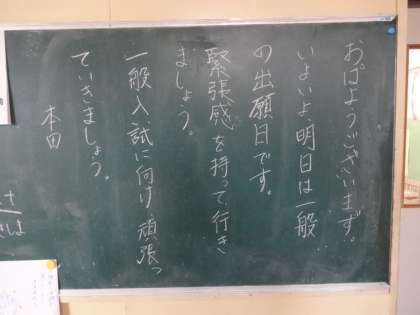 おはようございます。
いよいよ、明日は一般
の出願日です。
緊張感を持って、行き
ましょう。
一般入試に向け、頑張っ
ていきましょう。
本田